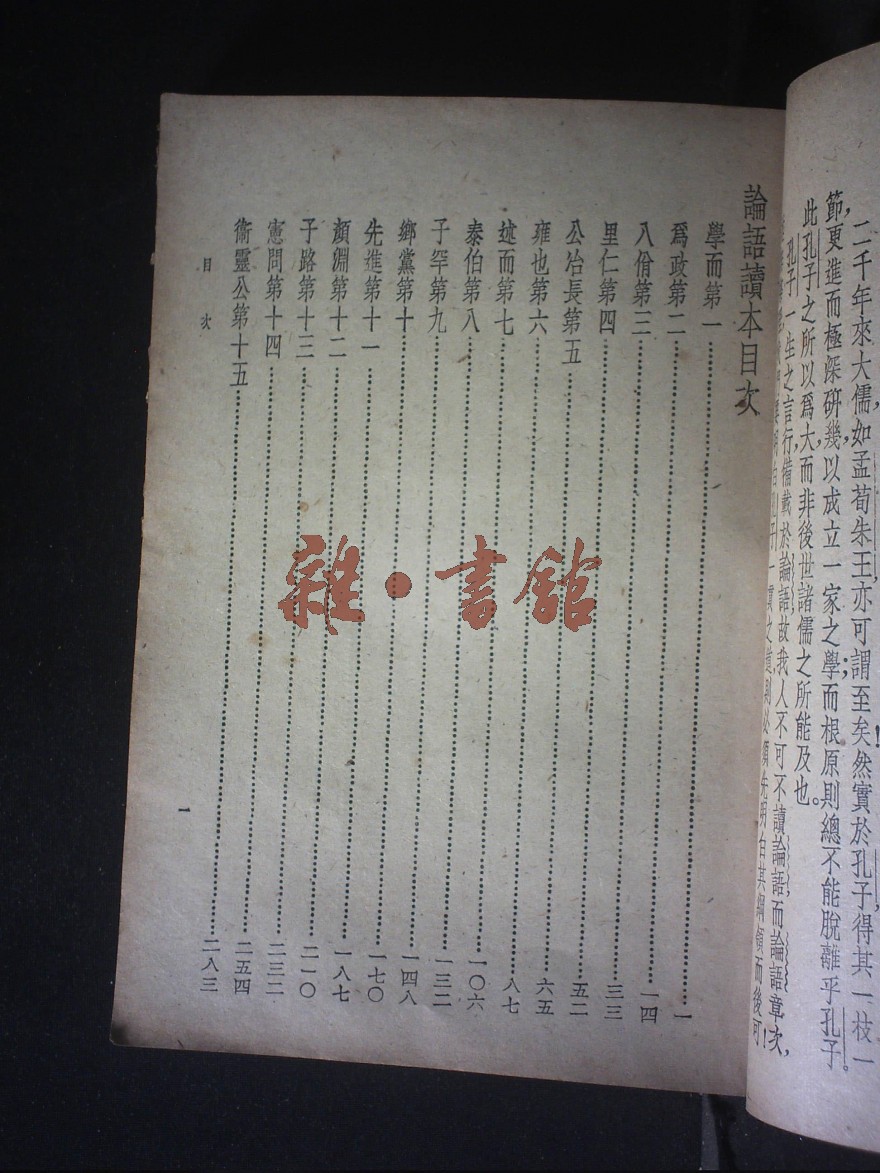 二千年來大儒，如孟荀朱王，亦可謂至矣！然實於孔子，得其一枝一
節，更進而極深硏幾，以成立一家之學；而根原則總不能脫離乎孔子
此孔子之所以爲大，而非後世諸儒之所能及也。
孔子一生之言行，備載於論語，故我人不可不讀論語，而論語章次，
一貫之道，則必須先明白其綱領而後可！
論語讀本目次
學而第一…………一
爲政第二…………一四
八佾第三…………三三
里仁第四…………五二
公冶長第五…………六五
雍也第六…………八七
述而第七…………一〇六
泰伯第八…………一三二
子罕第九…………一四八
鄉黨第十…………一七〇
先進第十一…………一八七
顏淵第十二…………二一〇
子路第十三…………二三二
憲問第十四…………二五四
衞靈公第十五…………二八三
目次
一
雜·書館